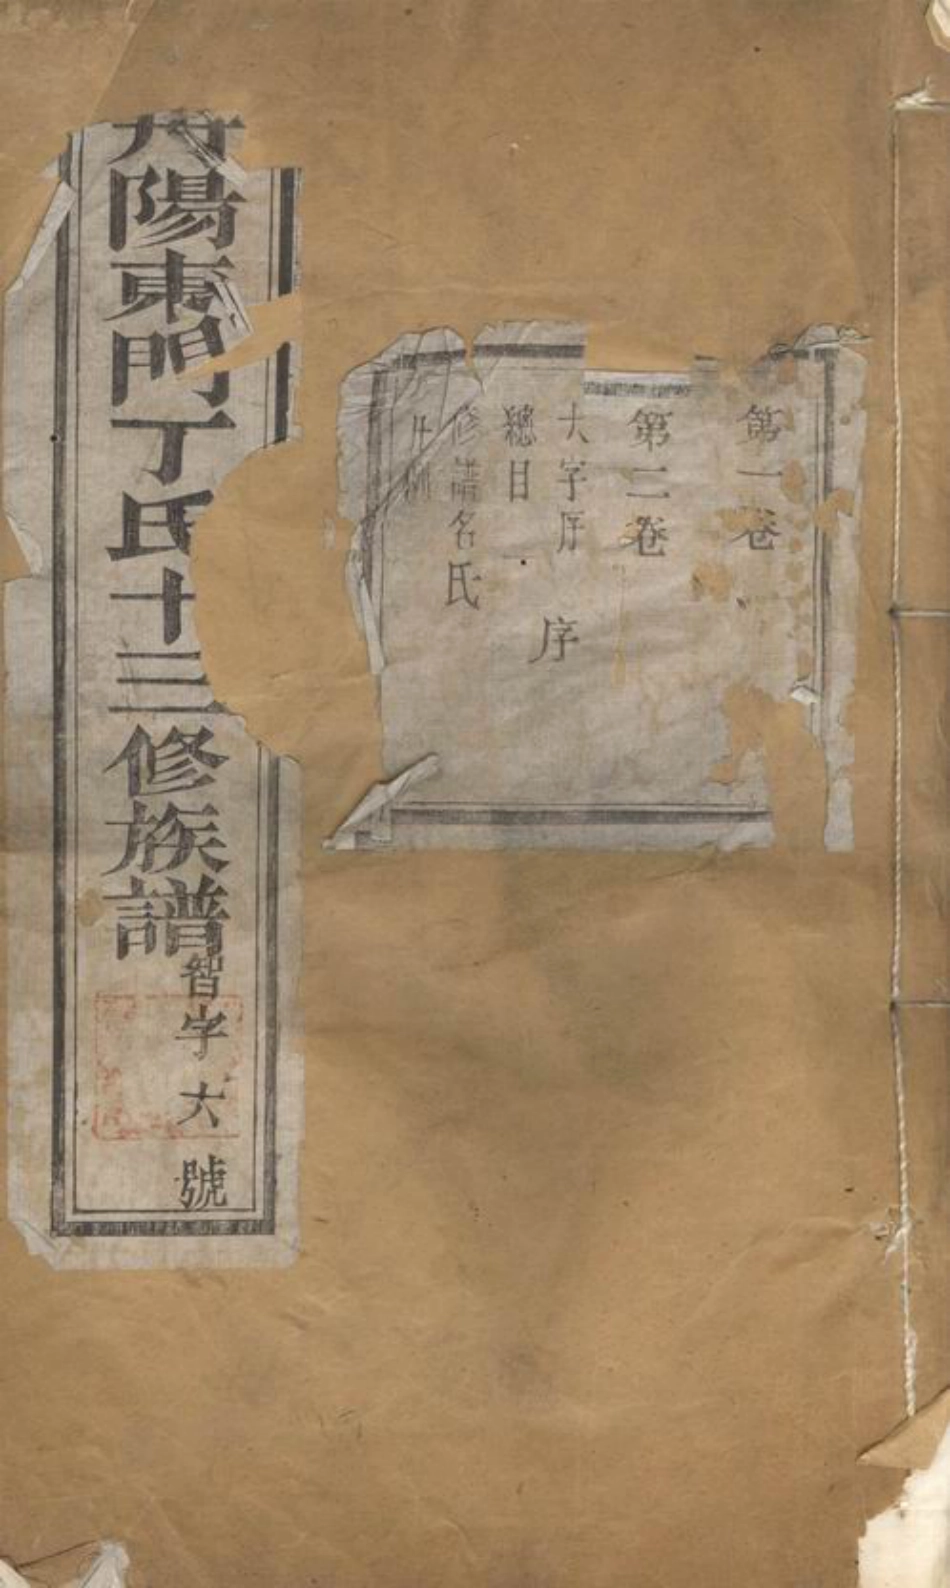 丹陽東門丁氏十三修族譜
智字 大 號
第一卷
第二卷
大字序
序
總目
修譜名氏
凡例